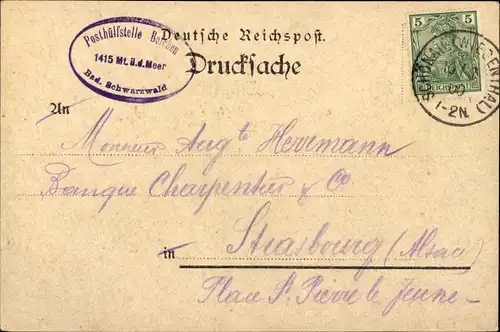 Posthülfstelle Belchen
1415 Mt. ü.d. Meer
Bad. Schwarzwald
Deutsche Reichspost.
Drucksache
5 5
SCHÖNAU (WIESENTHAL)
1-2N.
An
Monsieur Augte Herrmann
Banque Charpentier & Co
in Strasbourg (Alsace)
Place St. Pierre le Jeune -